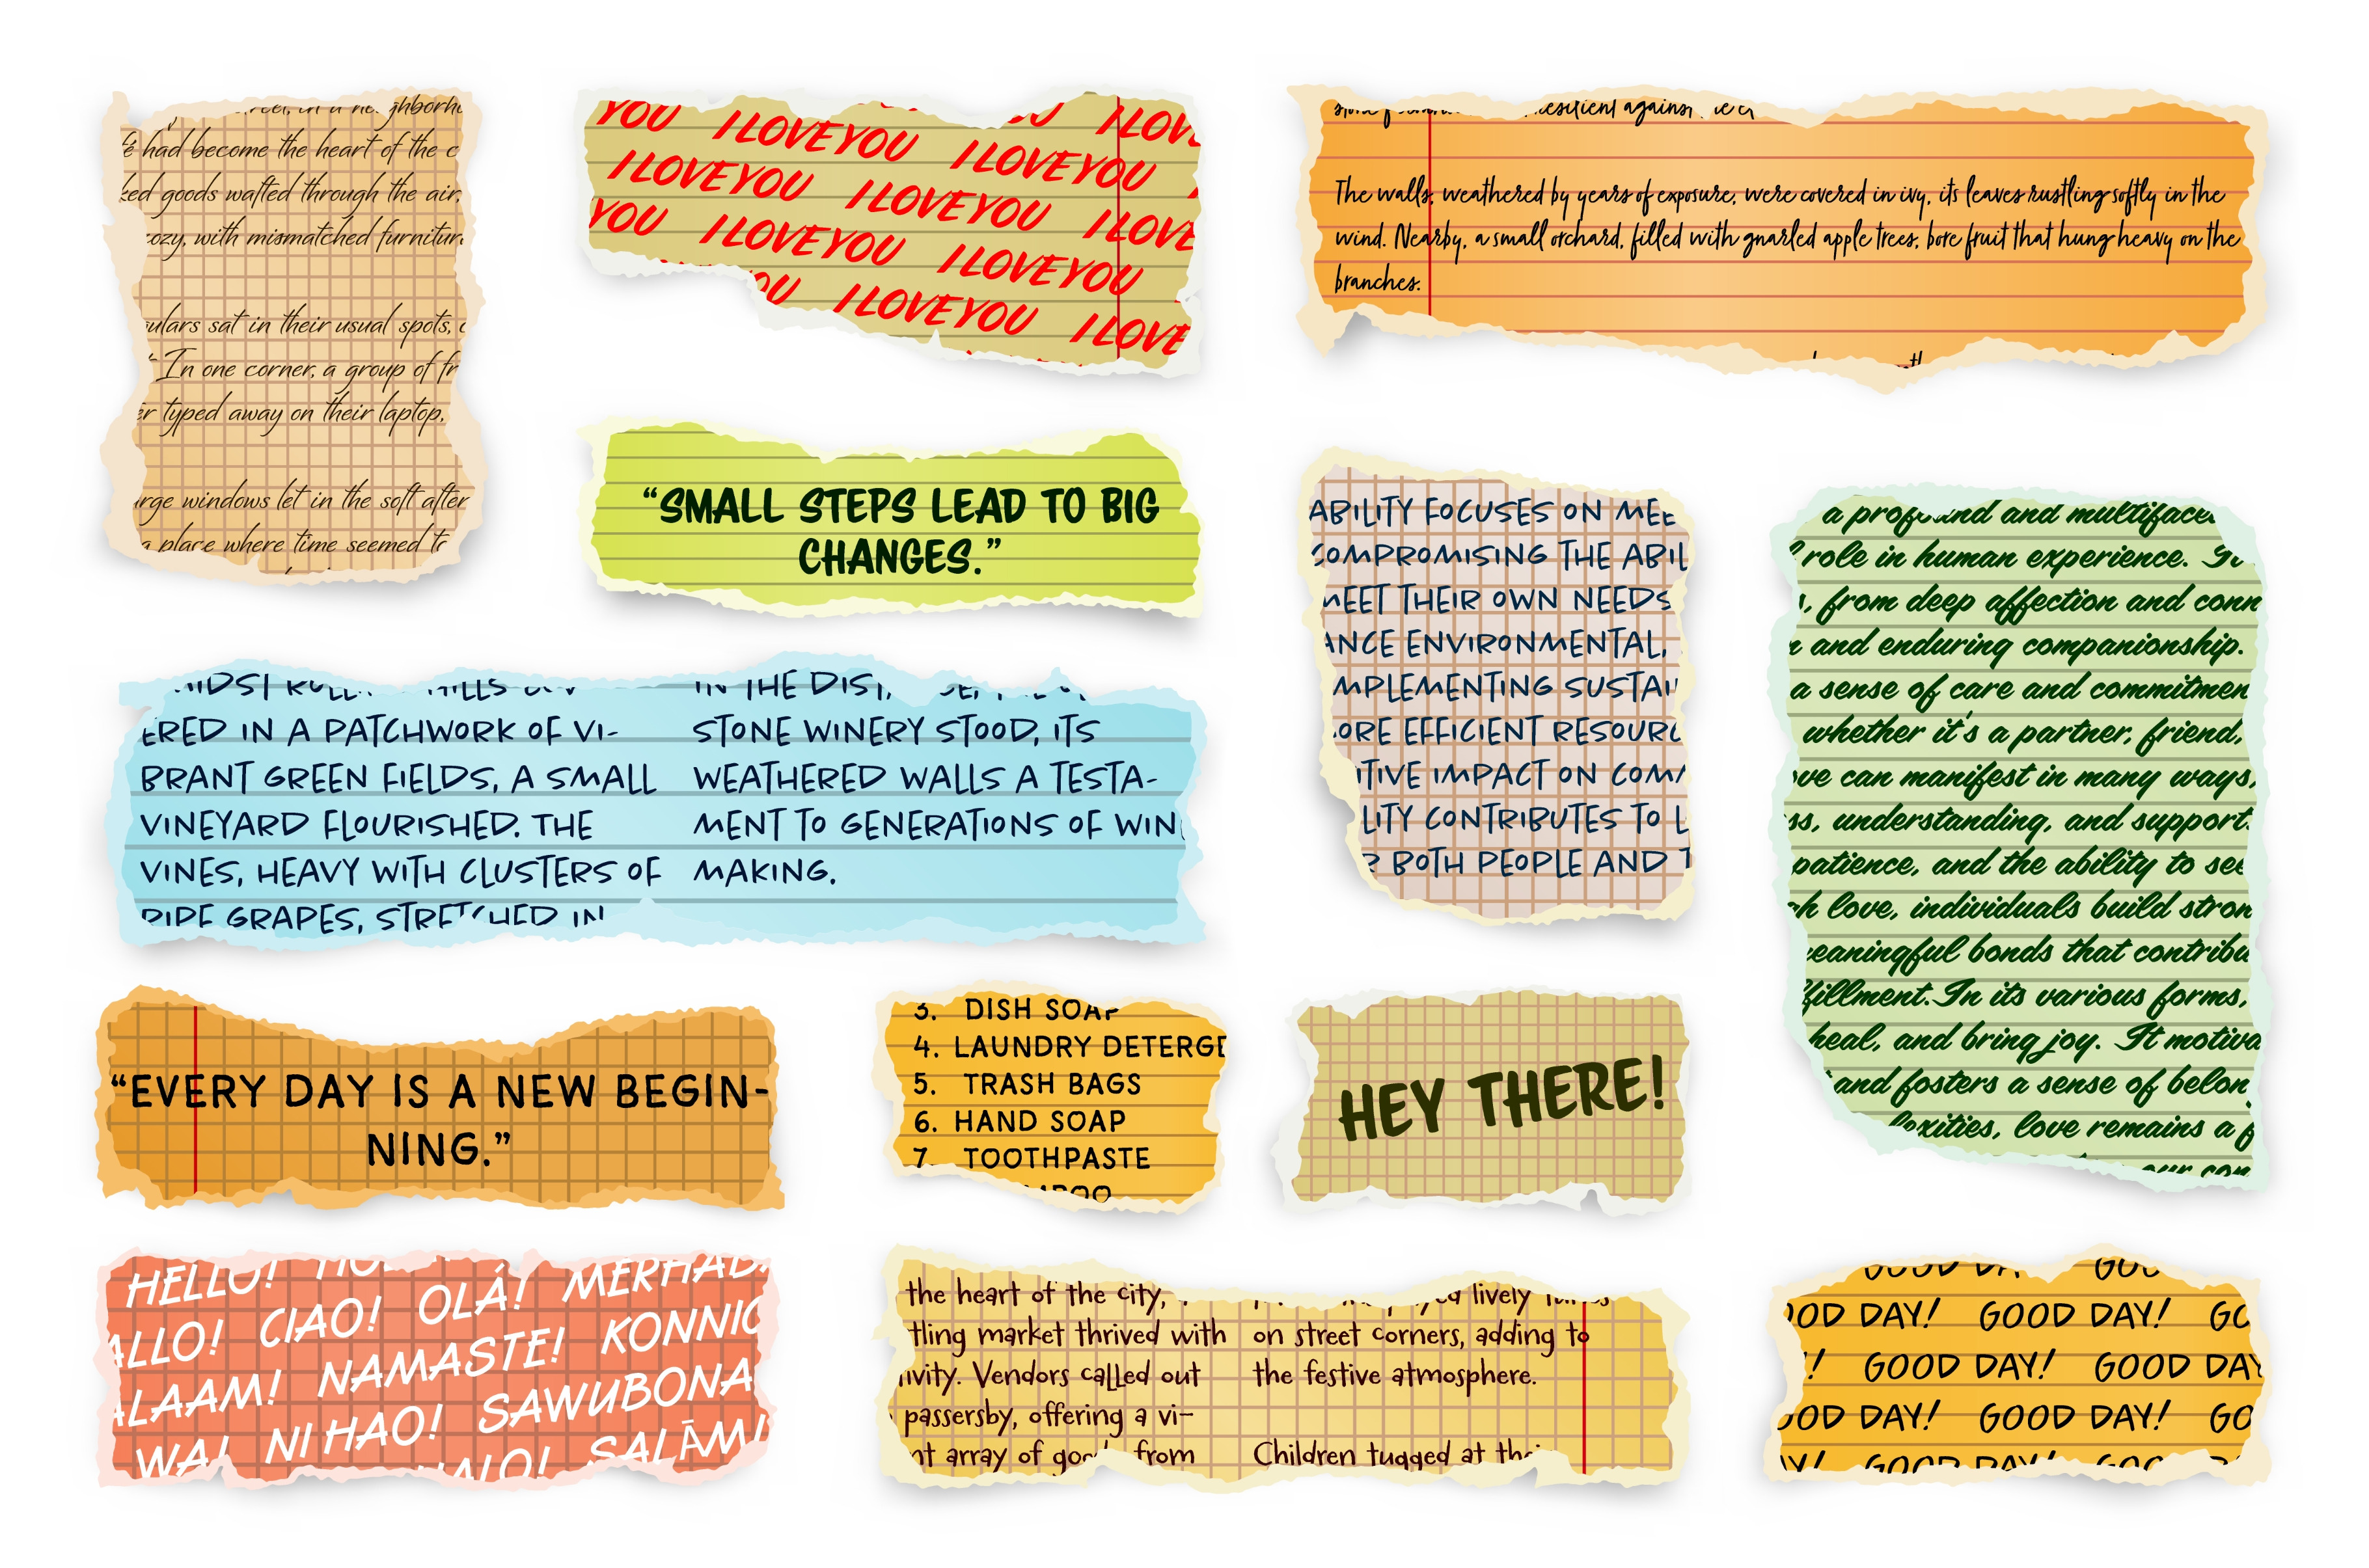 had become the heart of the
goods wafted through the air,
with mismatched furniture
sat in their usual spots,
In one corner, a group of
typed away on their laptop,
windows let in the soft
place where time seemed to
YOU I LOVE YOU
I LOVE YOU I LOVE YOU
I LOVE YOU I LOVE
YOU I LOVE YOU I LOVE YOU
I LOVE YOU I LOVE
resilient against
The walls, weathered by years of exposure, were covered in ivy, its leaves rustling softly in the
wind. Nearby, a small orchard, filled with gnarled apple trees, bore fruit that hung heavy on the
branches.
“SMALL STEPS LEAD TO BIG
CHANGES.”
ABILITY FOCUSES ON
COMPROMISING THE ABIL
MEET THEIR OWN NEEDS
ANCE ENVIRONMENTAL,
MPLEMENTING SUSTAI
ORE EFFICIENT RESOURC
TIVE IMPACT ON COM
LITY CONTRIBUTES TO L
BOTH PEOPLE AND T
a profound and multiface
role in human experience.
, from deep affection and conn
and enduring companionship.
a sense of care and commitmen
whether it's a partner, friend,
ve can manifest in many ways,
ss, understanding, and support.
patience, and the ability to see
gh love, individuals build stron
eaningful bonds that contribu
fillment. In its various forms,
heal, and bring joy. It motiva
and fosters a sense of belon
lexities, love remains a f
our com
ERED IN A PATCHWORK OF VI-
BRANT GREEN FIELDS, A SMALL
VINEYARD FLOURISHED. THE
VINES, HEAVY WITH CLUSTERS OF
RIPE GRAPES, STRETCHED IN
IN THE
STONE WINERY STOOD, ITS
WEATHERED WALLS A TESTA-
MENT TO GENERATIONS OF WIN
MAKING.
“EVERY DAY IS A NEW BEGIN-
NING.”
3. DISH SOAP
4. LAUNDRY DETERGE
5. TRASH BAGS
6. HAND SOAP
7 TOOTHPASTE
HEY THERE!
HELLO! MERHABA
ALLO! CIAO! OLÁ! KONNIC
ALAAM! NAMASTE! SAWUBONA
WA! NI HAO! SALĀM
the heart of the city,
tling market thrived with
ivity. Vendors called out
passersby, offering a vi-
nt array of goods from
lively tunes
on street corners, adding to
the festive atmosphere.
Children tugged at their
GOOD DA GOO
OOD DAY! GOOD DAY! GO
! GOOD DAY! GOOD DAY
OOD DAY! GOOD DAY! GO
Y! GOOD DAY! GOOD DA